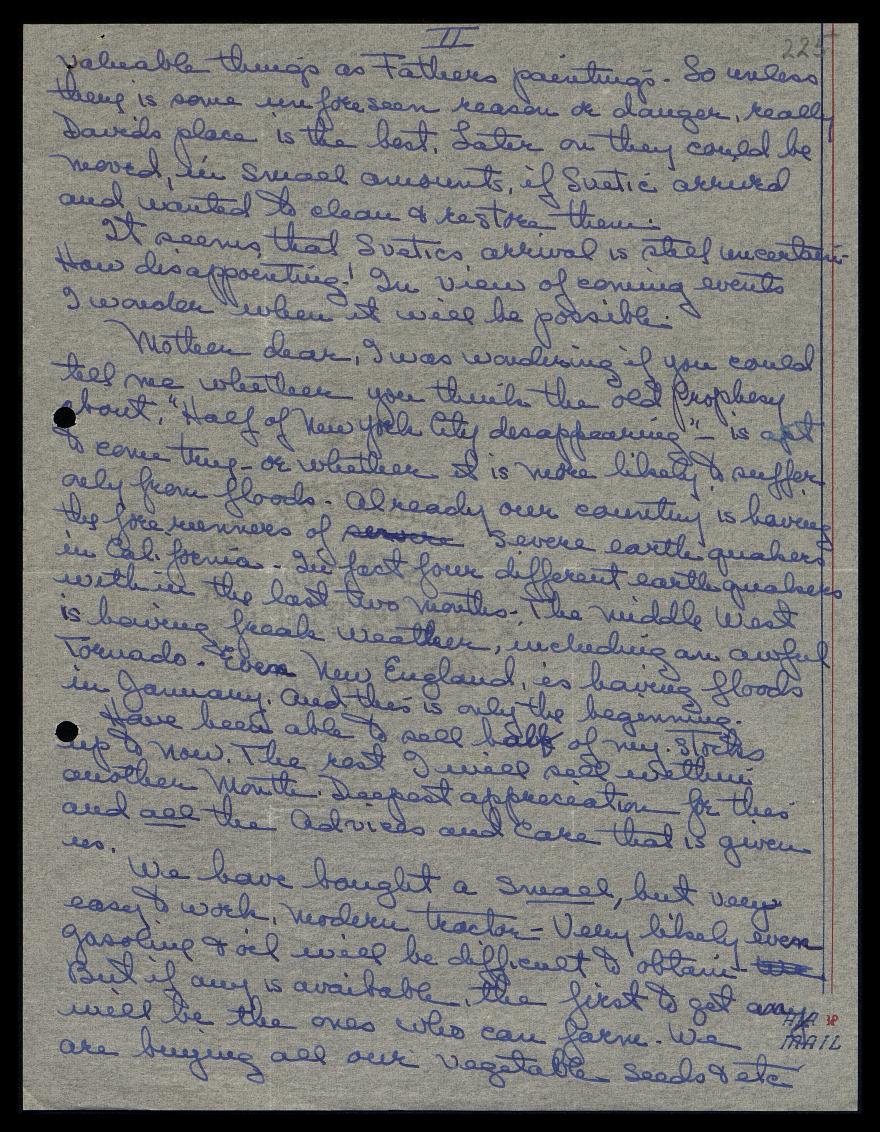 II
225
valuable things as Fathers paintings. So unless
there is some unforeseen reason or danger, really
Davids place is the best. Later on they could be
moved, in small amounts, if Svetic arrived
and wanted to clean & restore them.
It seems that Svetics arrival is still uncertain.
How disappointing! In view of coming events
I wonder when it will be possible.
Mother dear, I was wondering if you could
tell me whether you think the old Prophesy
about, "Half of New York City disappearing" - is apt
to come true - or whether it is more likely to suffer
only from floods. Already our country is having
the forerunners of severe earthquakes
in California - In fact four different earthquakes
within the last two months. The Middle West
is having freak weather, including an awful
Tornado. Even New England, is having floods
in January. And this is only the beginning.
Have been able to sell half of my stocks
up to now. The rest I will sell within
another month. Deepest appreciation for this
and all the Advices and Care that is given
us.
We have bought a small, but very
easy to work, modern tractor - Very likely even
gasoline & oil will be difficult to obtain
But if any is available, the first to get any
will be the ones who can farm. We
are buying all our vegetable seeds & etc
AIR
MAIL